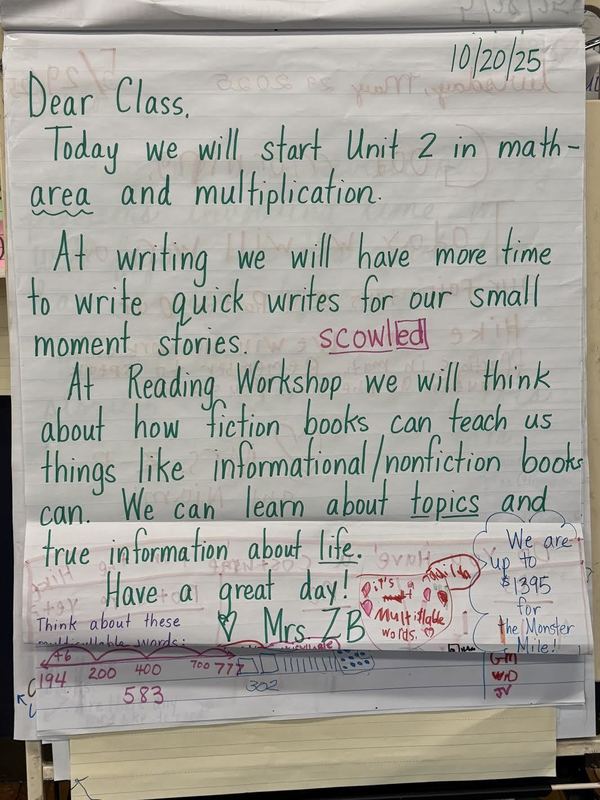 10/20/25
Dear Class,
Today we will start Unit 2 in math-
area and multiplication.
At writing we will have more time
to write quick writes for our small
moment stories. scowlled
At Reading Workshop we will think
about how fiction books can teach us
things like informational/nonfiction books
can. We can learn about topics and
true information about life.
Have a great day!
Mrs. ZB
We are
up to
$1395
for
the Monster
Mile!
it's
Multillable
words.
Think about these
multisyllable words:
+6
194 200 400 700 777
583
302
GM
WD
JV